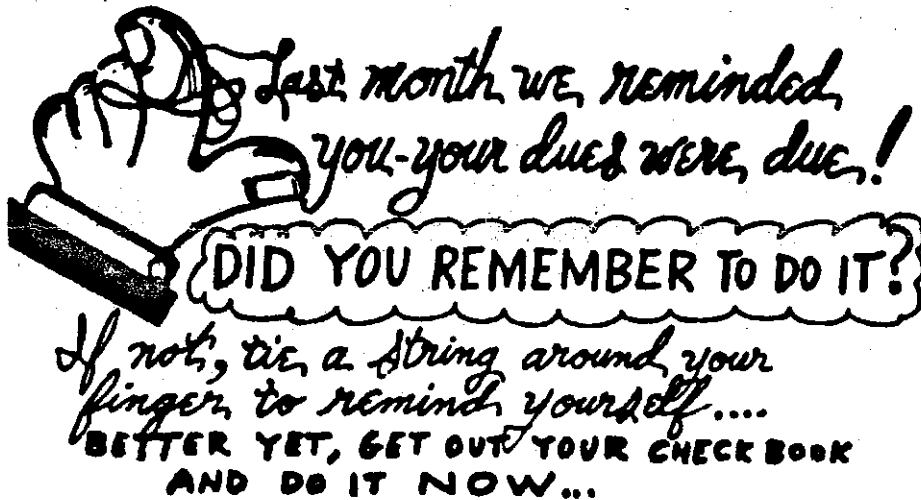 Last month we reminded
you-your dues were due!
DID YOU REMEMBER TO DO IT?
If not, tie a string around your
finger to remind yourself....
BETTER YET, GET OUT YOUR CHECK BOOK
AND DO IT NOW...